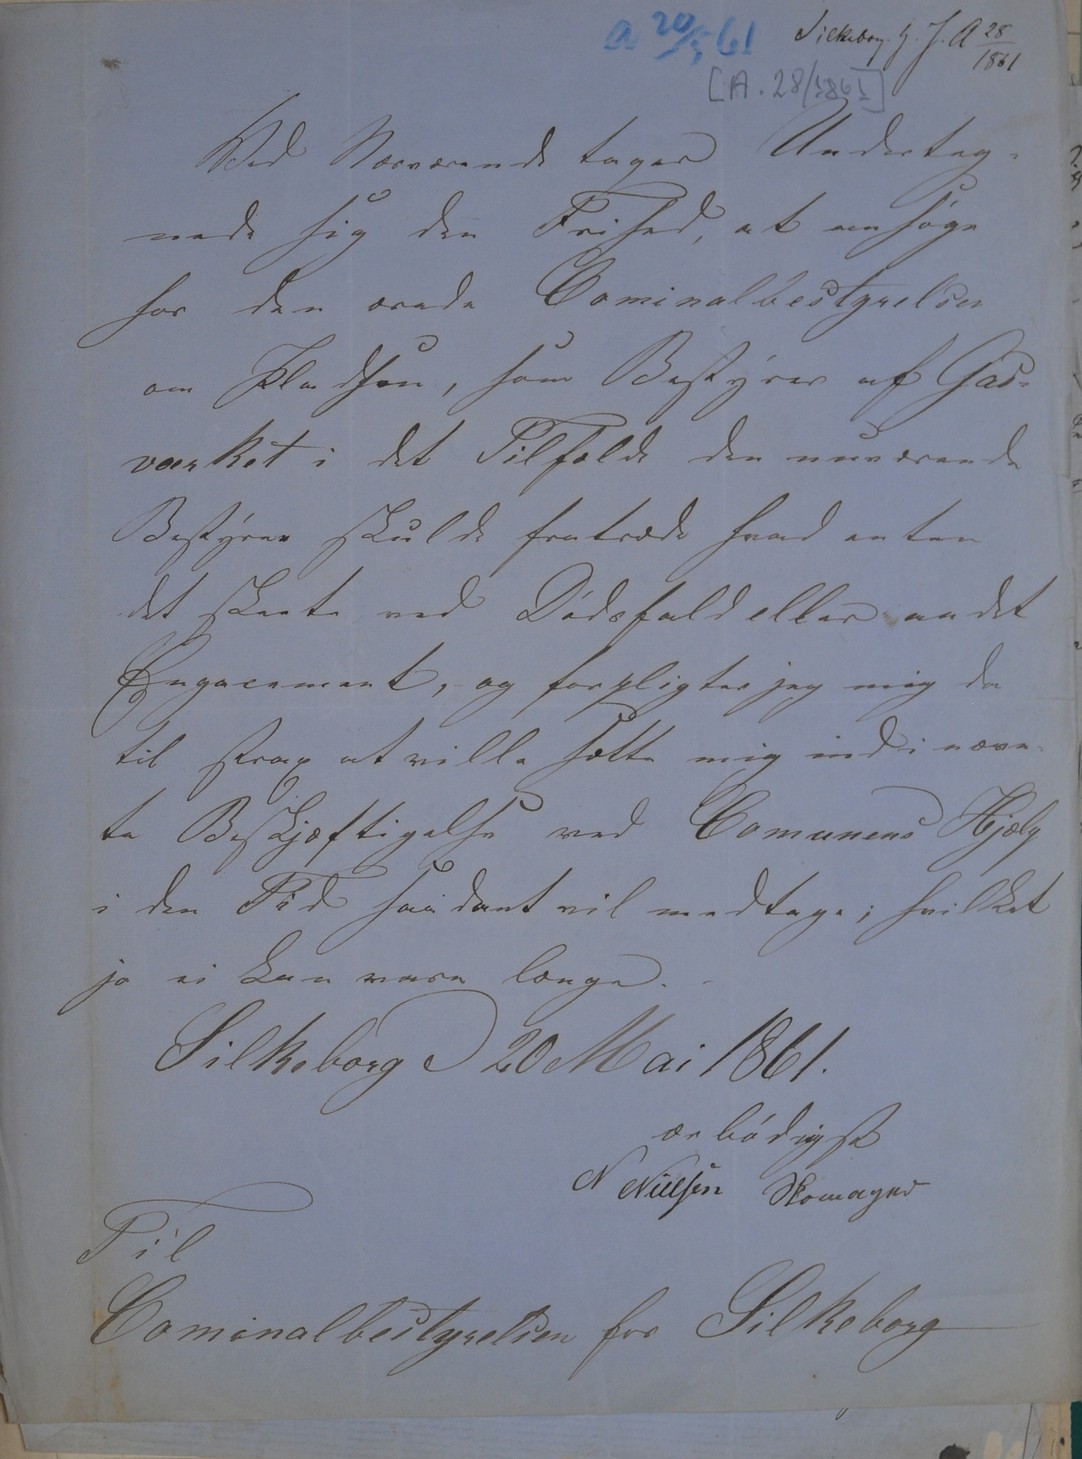 a 20/5 61
Silkeborg. H. J. A 28/1861
[A. 28/1861]
Ved Nærværende tager Underteg-
nede sig den Frihed, at ansøge
hos den ærede Cominalbestyrelsen
om Pladsen, som Bestyrer af Gas-
værket i det Tilfælde den nuværende
Bestyrer skulde fratræde hvad enten
det skeete ved Dødsfald eller andet
Engacement, og forpligter jeg mig da
til strax at ville sætte mig ind i nævn-
te Beskjæftigelse ved Comunens Hjælp
i den Tid saadant vil medtage; hvilket
jo ei kan være længe.
Silkeborg D 20 Mai 1861.
ærbødigst
N Nielsen Skomager
Til
Cominalbestyrelsen for Silkeborg